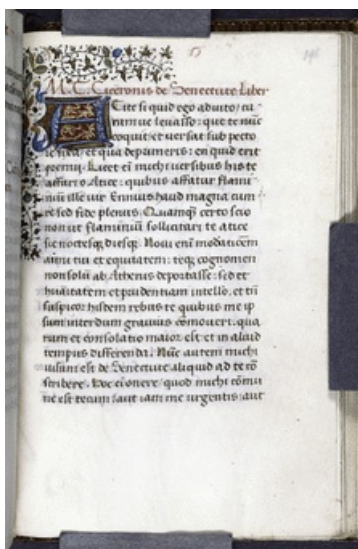 M. T. Ciceronis de Senectute Liber
Tite si quid ego adiuto / cu
ramue leuasso: que te nūc
coquit / et uersat sub pecto
re fixa / et qua depumeris: en quid erit
premii. Licet eī michi uersibus his te
affari o Atice: quibus affatur flami
nūm ille uir Ennius haud magna cum
re sed fide plenus. Quamqȝ certo scio
non ut flaminiūm sollicitari te atice
sic noctesqȝ diesqȝ. Noui enī moderationem
animi tui et equitatem: teqȝ cognomen
non solū ab Athenis deportasse: sed et
huāitatem et prudentiam intello. et tn̄
suspicor hisdem rebus te quibus me ip
sum interdum grauius cōmoueri. qua
rum et consolatio maior est et in aliud
tempus differenda. Nūc autem michi
uisum est de Senectute aliquid ad te cō
scribere. Hoc eī onere / quod michi cōmu
ne est tecum / aut iam me urgentis / aut